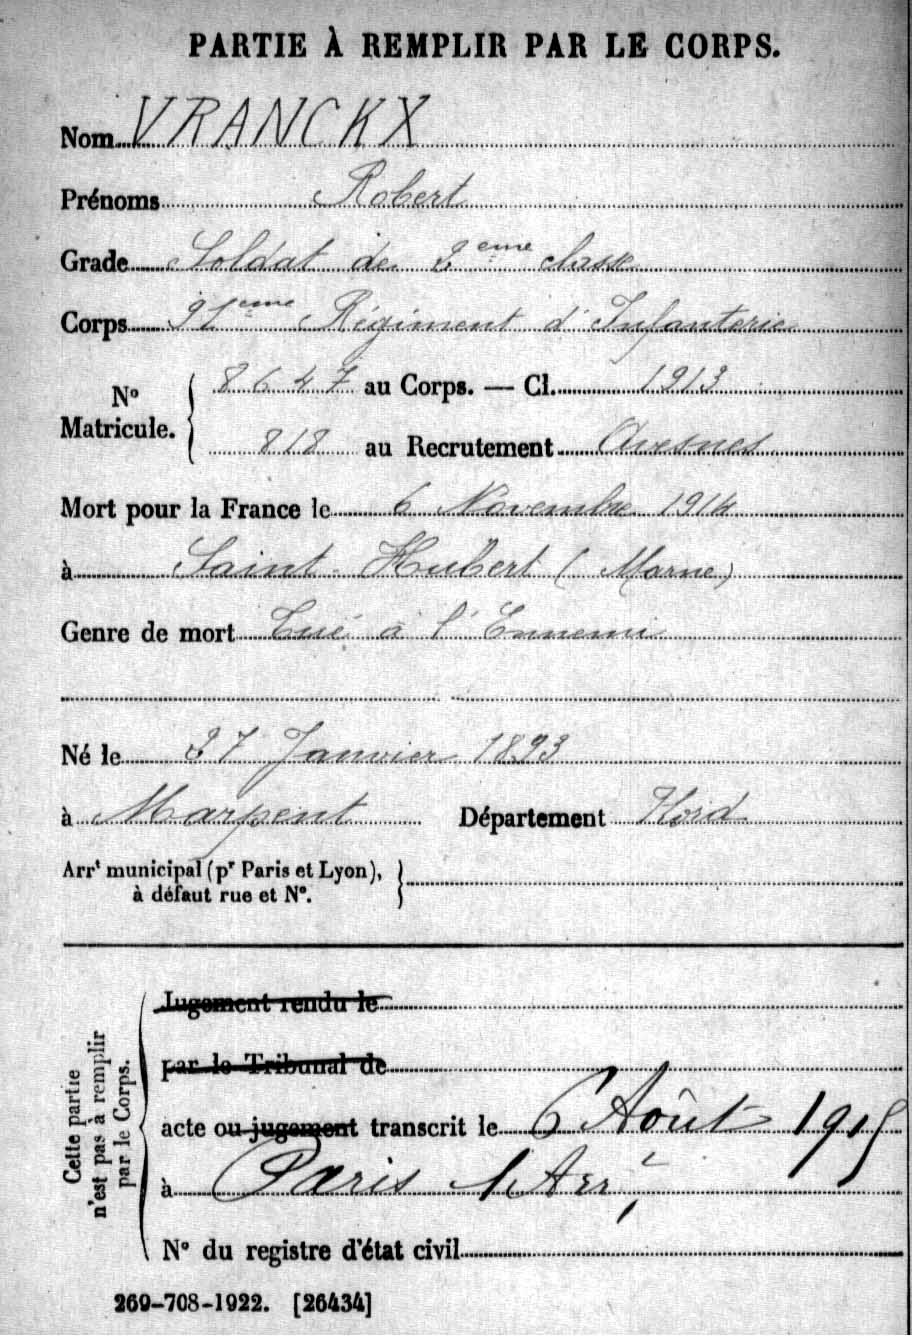 PARTIE À REMPLIR PAR LE CORPS.
Nom VRANCKX
Prénoms Robert
Grade Soldat de 2eme classe
Corps 91eme Régiment d'Infanterie
No Matricule. 8647 au Corps. — Cl. 1913
818 au Recrutement Avesnes
Mort pour la France le 6 Novembre 1914
à Saint-Hubert (Marne)
Genre de mort Tué à l'Ennemi
Né le 27 Janvier 1893
à Marpent Département Nord
Arrt municipal (pr Paris et Lyon),
à défaut rue et No.
Cette partie
n'est pas à remplir
par le Corps.
Jugement rendu le
par le Tribunal de
acte ou jugement transcrit le 6 Août 1915
à Paris 1 Arrt
No du registre d'état civil
269-708-1922. [26434]